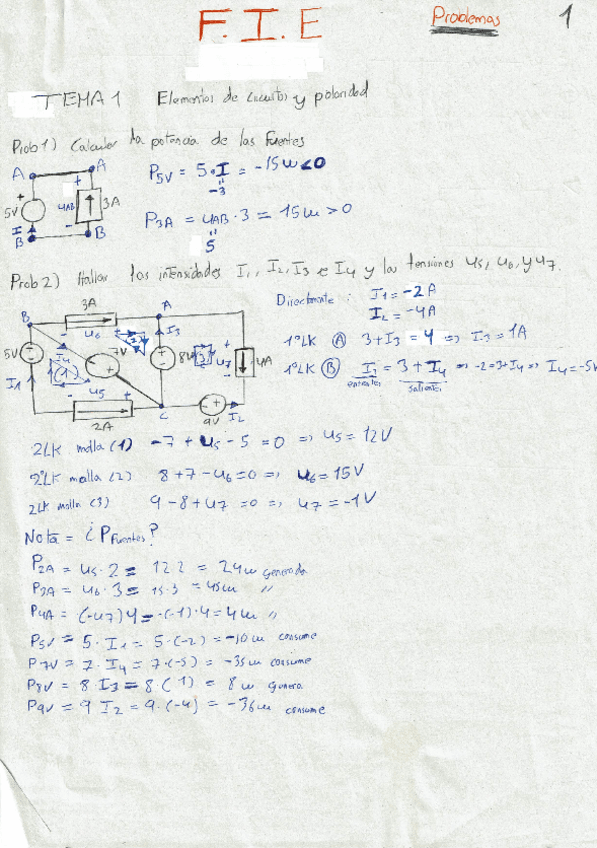 F. I. E
Problemas
1
TEMA 1 Elementos de circuitos y polaridad
Prob 1) Calcular la potencia de las Fuentes
A A
+ +
5V uAB 3A
I - B B
P5V = 5·I = -15w <0
" -3
P3A = uAB·3 = 15w >0
" 5
Prob 2) Hallar las intensidades I1, I2, I3 e I4 y las tensiones u5, u6, y u7.
3A
B A
u6 (2) I3
5V I4 7V 8V (3) u7 4A
I1 (1) u5
2A C 9V I2
Directamente : I1 = -2A
I2 = -4A
1ºLK (A) 3+I3 = 4 => I3 = 1A
1ºLK (B) I1 = 3 + I4 => -2=3+I4 => I4=-5A
entrantes salientes
2LK malla (1) -7 + u5 - 5 = 0 => u5 = 12V
2ºLK malla (2) 8+7-u6=0 => u6 = 15V
2LK malla (3) 9-8+u7 = 0 => u7 = -1V
Nota = ¿PFuentes?
P2A = u5·2 = 12·2 = 24w generada
P3A = u6·3 = 15·3 = 45w "
P4A = (-u7)4 = -(-1)·4 = 4w "
P5V = 5·I1 = 5·(-2) = -10w consume
P7V = 7·I4 = 7·(-5) = -35w consume
P8V = 8·I3 = 8(1) = 8w genera
P9V = 9 I2 = 9·(-4) = -36w consume